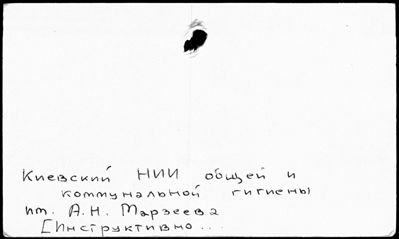 Киевский НИИ общей и
коммунальной гигиены
им. А.Н. Марзеева
[Инструктивно...